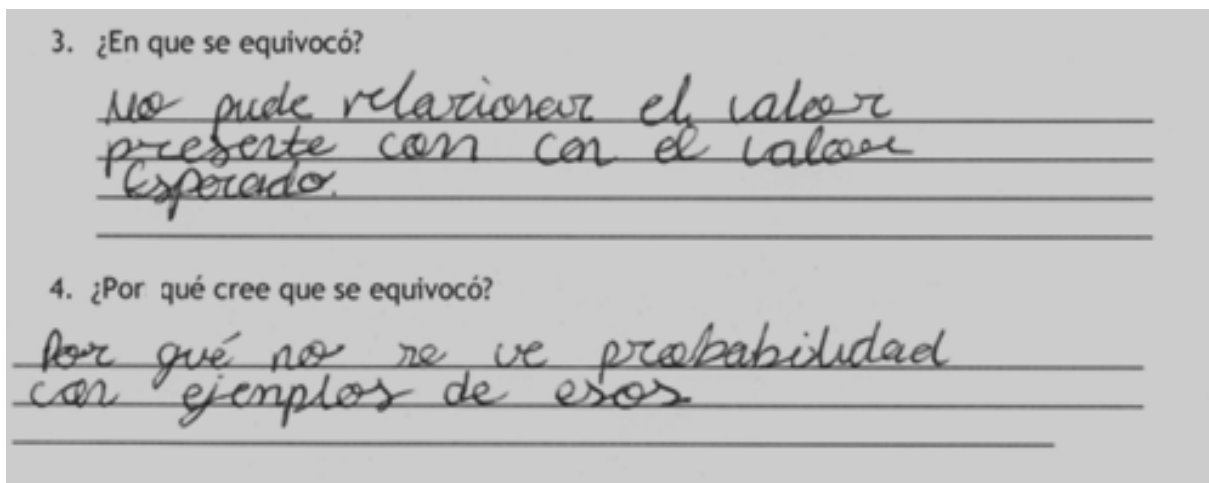 3. ¿En que se equivocó?
No pude relacionar el valor
presente con con el valor
Esperado.
4. ¿Por qué cree que se equivocó?
Por qué no se ve probabilidad
con ejemplos de esos